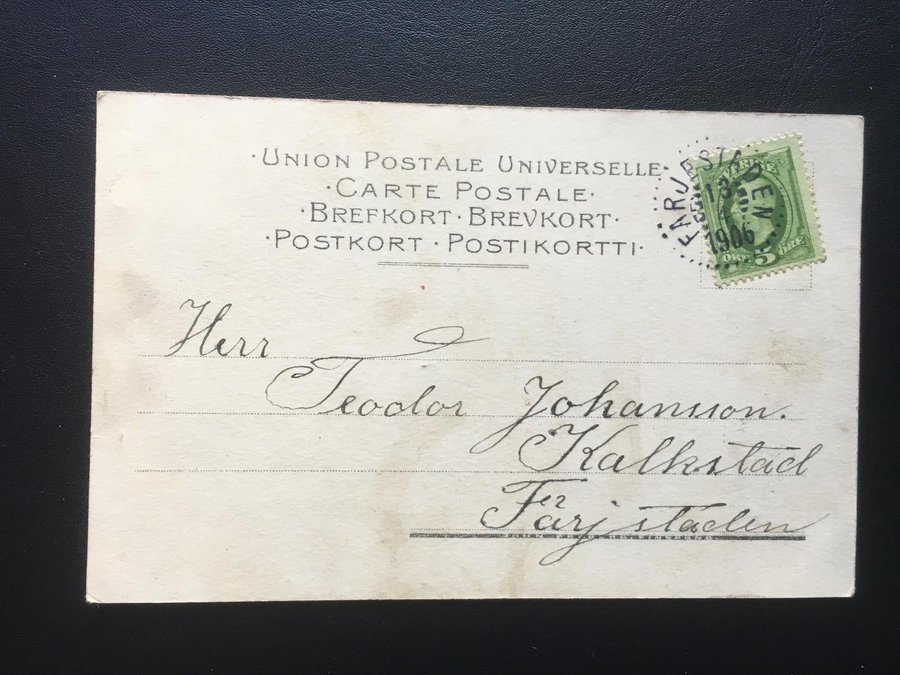 · UNION POSTALE UNIVERSELLE ·
· CARTE POSTALE ·
· BREFKORT · BREVKORT ·
· POSTKORT · POSTIKORTTI ·
FÄRJESTADEN
13
1906
5
ÖRE ÖRE
Herr
Teodor Johansson.
Kalkstad
Färjstaden
JOHN FRÖBERG, FINSPONG.